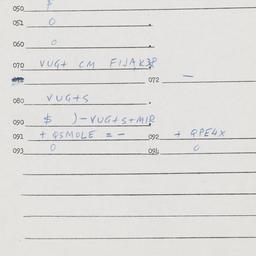 050 $
051 0
060 0
070 VUG+ CM FIJAK38
072 —
080 VUG+S
090 $ )-VUG+S+MIR
091 + QSMOLE = - 092 + QPE4X
093 0 094 0